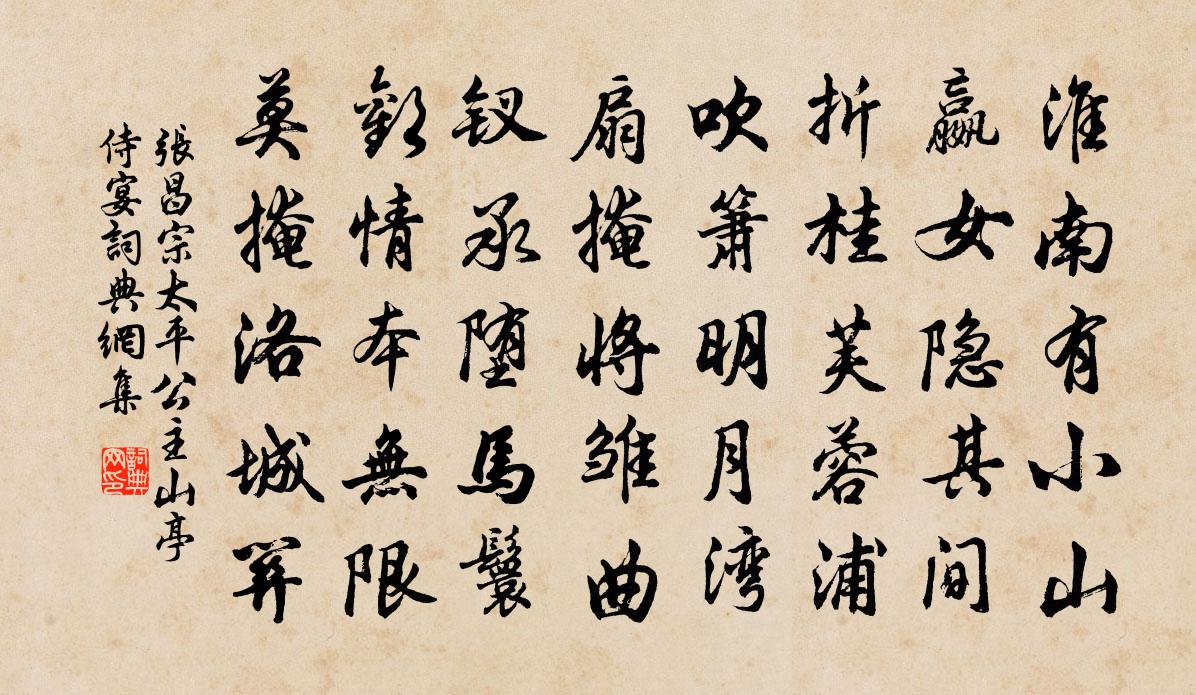 淮南有小山
嬴女隐其间
折桂芙蓉浦
吹箫明月湾
扇掩将雏曲
钗承堕马鬟
歡情本無限
莫掩洛城關
張昌宗太平公主山亭
侍宴詞典網集
詞典
网印